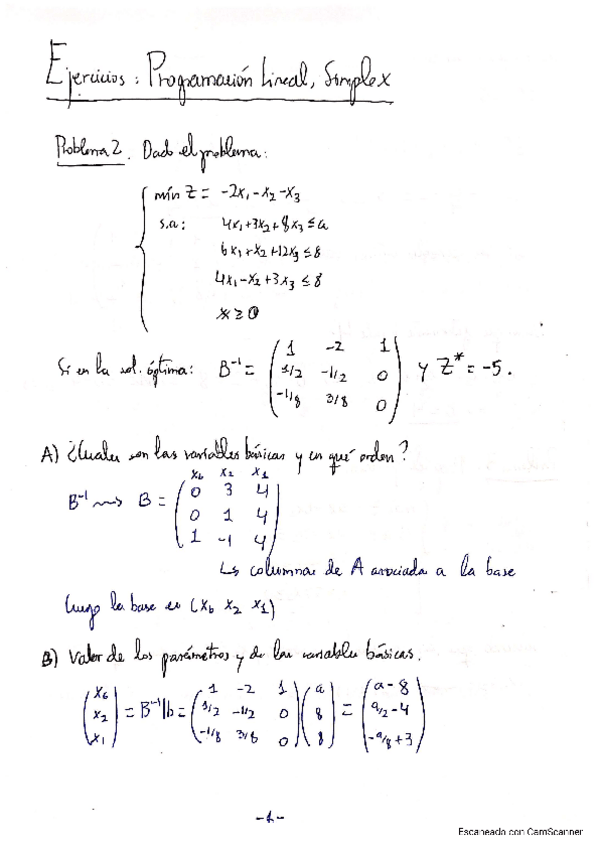 Ejercicios: Programación Lineal, Simplex
Problema 2. Dado el problema:
mín Z = -2x₁ - x₂ - x₃
s.a: 4x₁ + 3x₂ + 8x₃ ≤ a
6x₁ + x₂ + 12x₃ ≤ 8
4x₁ - x₂ + 3x₃ ≤ 8
x ≥ 0
Si en la sol. óptima: B⁻¹ = ( 1 -2 1 ; 1/2 -1/2 0 ; -1/8 3/8 0 ) y Z* = -5.
A) ¿Cuales son las variables básicas y en qué orden?
x₆ x₂ x₁
B⁻¹ ⇝ B = ( 0 3 4 ; 0 1 4 ; 1 -1 4 )
↳ columnas de A asociada a la base
luego la base es (x₆ x₂ x₁)
B) Valor de los parámetros y de las variables básicas.
( x₆ ; x₂ ; x₁ ) = B⁻¹ b = ( 1 -2 1 ; 1/2 -1/2 0 ; -1/8 3/8 0 ) ( a ; 8 ; 8 ) = ( a - 8 ; a/2 - 4 ; -a/8 + 3 )
-1-
Escaneado con CamScanner